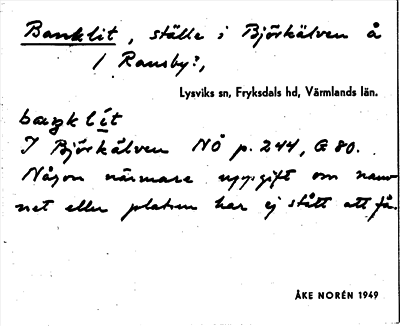 Banklit, ställe i Björkälven å
/ Ransby?,
Lysviks sn, Fryksdals hd, Värmlands län.
I Björkälven NÅ p. 244, G 80.
Någon närmare uppgift om nam-
net eller platsen har ej stått att få.
ÅKE NORÉN 1949